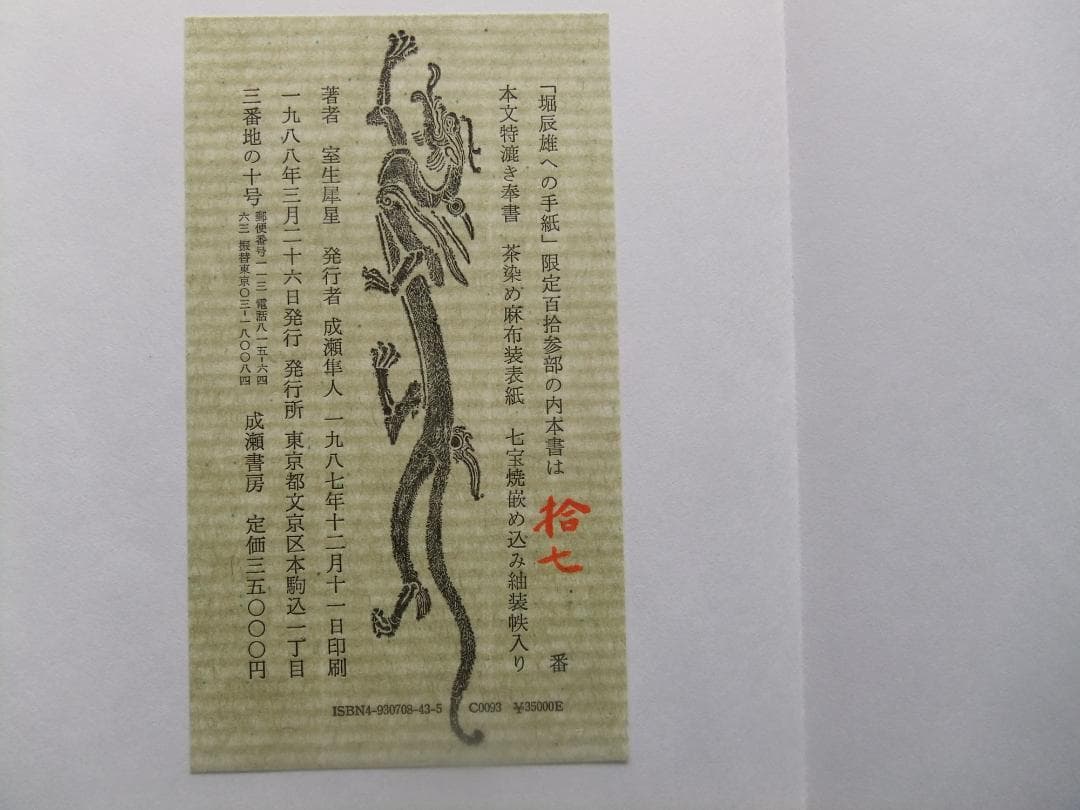 「堀辰雄への手紙」限定百拾参部の内本書は 拾七 番
本文特漉き奉書 茶染め麻布装表紙 七宝焼嵌め込み紬装帙入り
著者 室生犀星 発行者 成瀬隼人 一九八七年十二月十一日印刷
一九八八年三月二十六日発行 発行所 東京都文京区本駒込一丁目
三番地の十号 郵便番号一一三 電話八一五−六四
六三 振替東京〇三−一八〇〇八四 成瀬書房 定価三五〇〇〇円
ISBN4-930708-43-5 C0093 ¥35000E